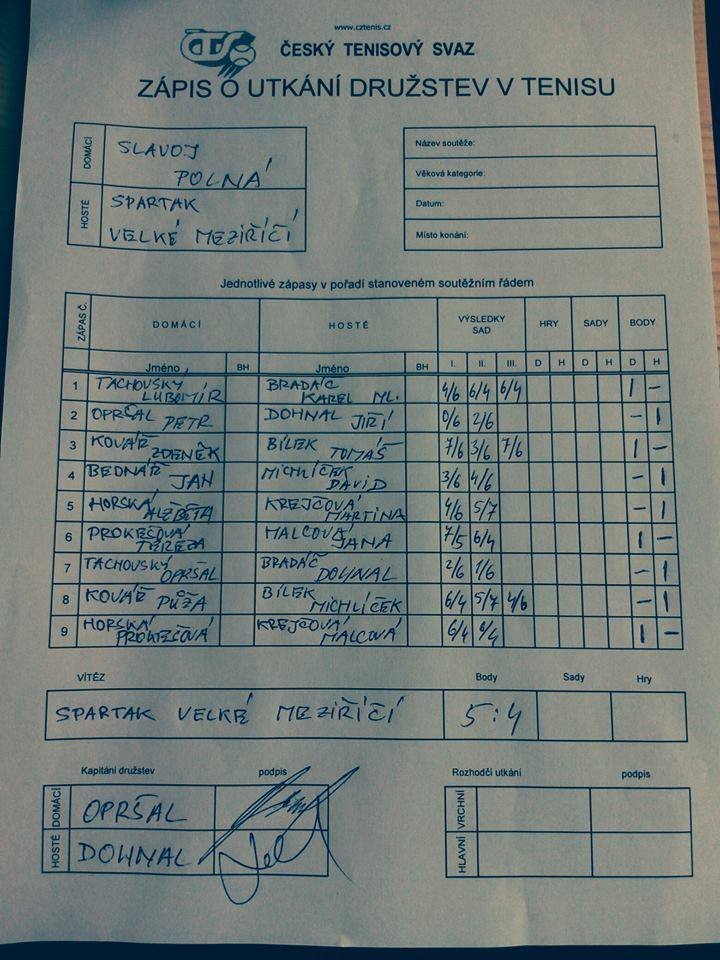 www.cztenis.cz
ČTS ČESKÝ TENISOVÝ SVAZ
ZÁPIS O UTKÁNÍ DRUŽSTEV V TENISU
DOMÁCÍ SLAVOJ
POLNÁ
HOSTÉ SPARTAK
VELKÉ MEZIŘÍČÍ
Název soutěže:
Věková kategorie:
Datum:
Místo konání:
Jednotlivé zápasy v pořadí stanoveném soutěžním řádem
ZÁPAS Č. DOMÁCÍ HOSTÉ VÝSLEDKY SAD HRY SADY BODY
Jméno BH Jméno BH I. II. III. D H D H D H
1 TACHOVSKÝ LUBOMÍR BRADÁČ KAREL ML. 4/6 6/4 6/4 1 –
2 OPRŠAL PETR DOHNAL JIŘÍ 0/6 2/6 – 1
3 KOVÁŘ ZDENĚK BÍLEK TOMÁŠ 7/6 3/6 7/6 1 –
4 BEDNÁŘ JAN MICHLÍČEK DAVID 3/6 4/6 – 1
5 HORSKÁ ALŽBĚTA KREJČOVÁ MARTINA 4/6 5/7 – 1
6 PROKEŠOVÁ TEREZA MALCOVÁ JANA 7/5 6/4 1 –
7 TACHOVSKÝ OPRŠAL BRADÁČ DOHNAL 2/6 1/6 – 1
8 KOVÁŘ PŮŽA BÍLEK MICHLÍČEK 6/4 5/7 4/6 – 1
9 HORSKÁ PROKEŠOVÁ KREJČOVÁ MALCOVÁ 6/4 6/4 1 –
VÍTĚZ Body Sady Hry
SPARTAK VELKÉ MEZIŘÍČÍ 5:4
Kapitáni družstev podpis
DOMÁCÍ OPRŠAL
HOSTÉ DOHNAL
Rozhodčí utkání podpis
VRCHNÍ
HLAVNÍ